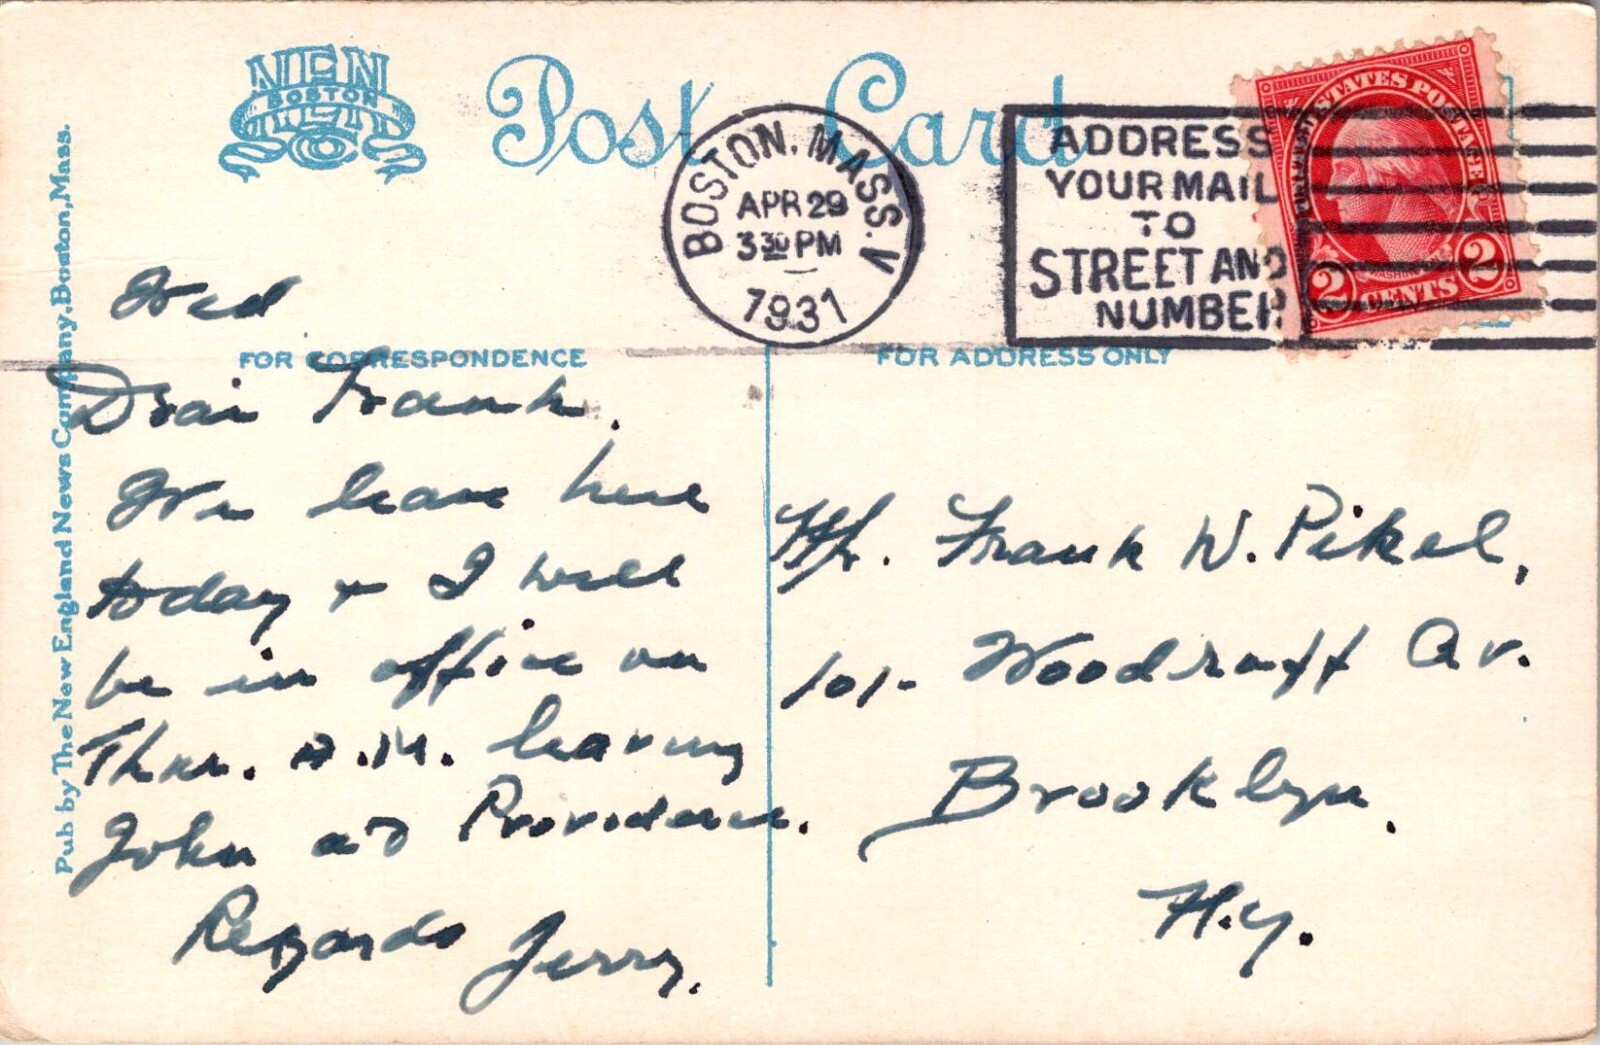 NEN
BOSTON
Post Card
BOSTON, MASS. V
APR 29
3 30 PM
1931
ADDRESS
YOUR MAIL
TO
STREET AND
NUMBER
UNITED STATES POSTAGE
WASHINGTON
2 CENTS 2
Pub by The New England News Company, Boston, Mass.
FOR CORRESPONDENCE
FOR ADDRESS ONLY
Wed
Dear Frank.
We leave here
today + I will
be in office on
Thur. A.M. leaving
John at Providence.
Regards Jerry.
Mr. Frank W. Pikel,
101- Woodruff Av.
Brooklyn.
N.Y.